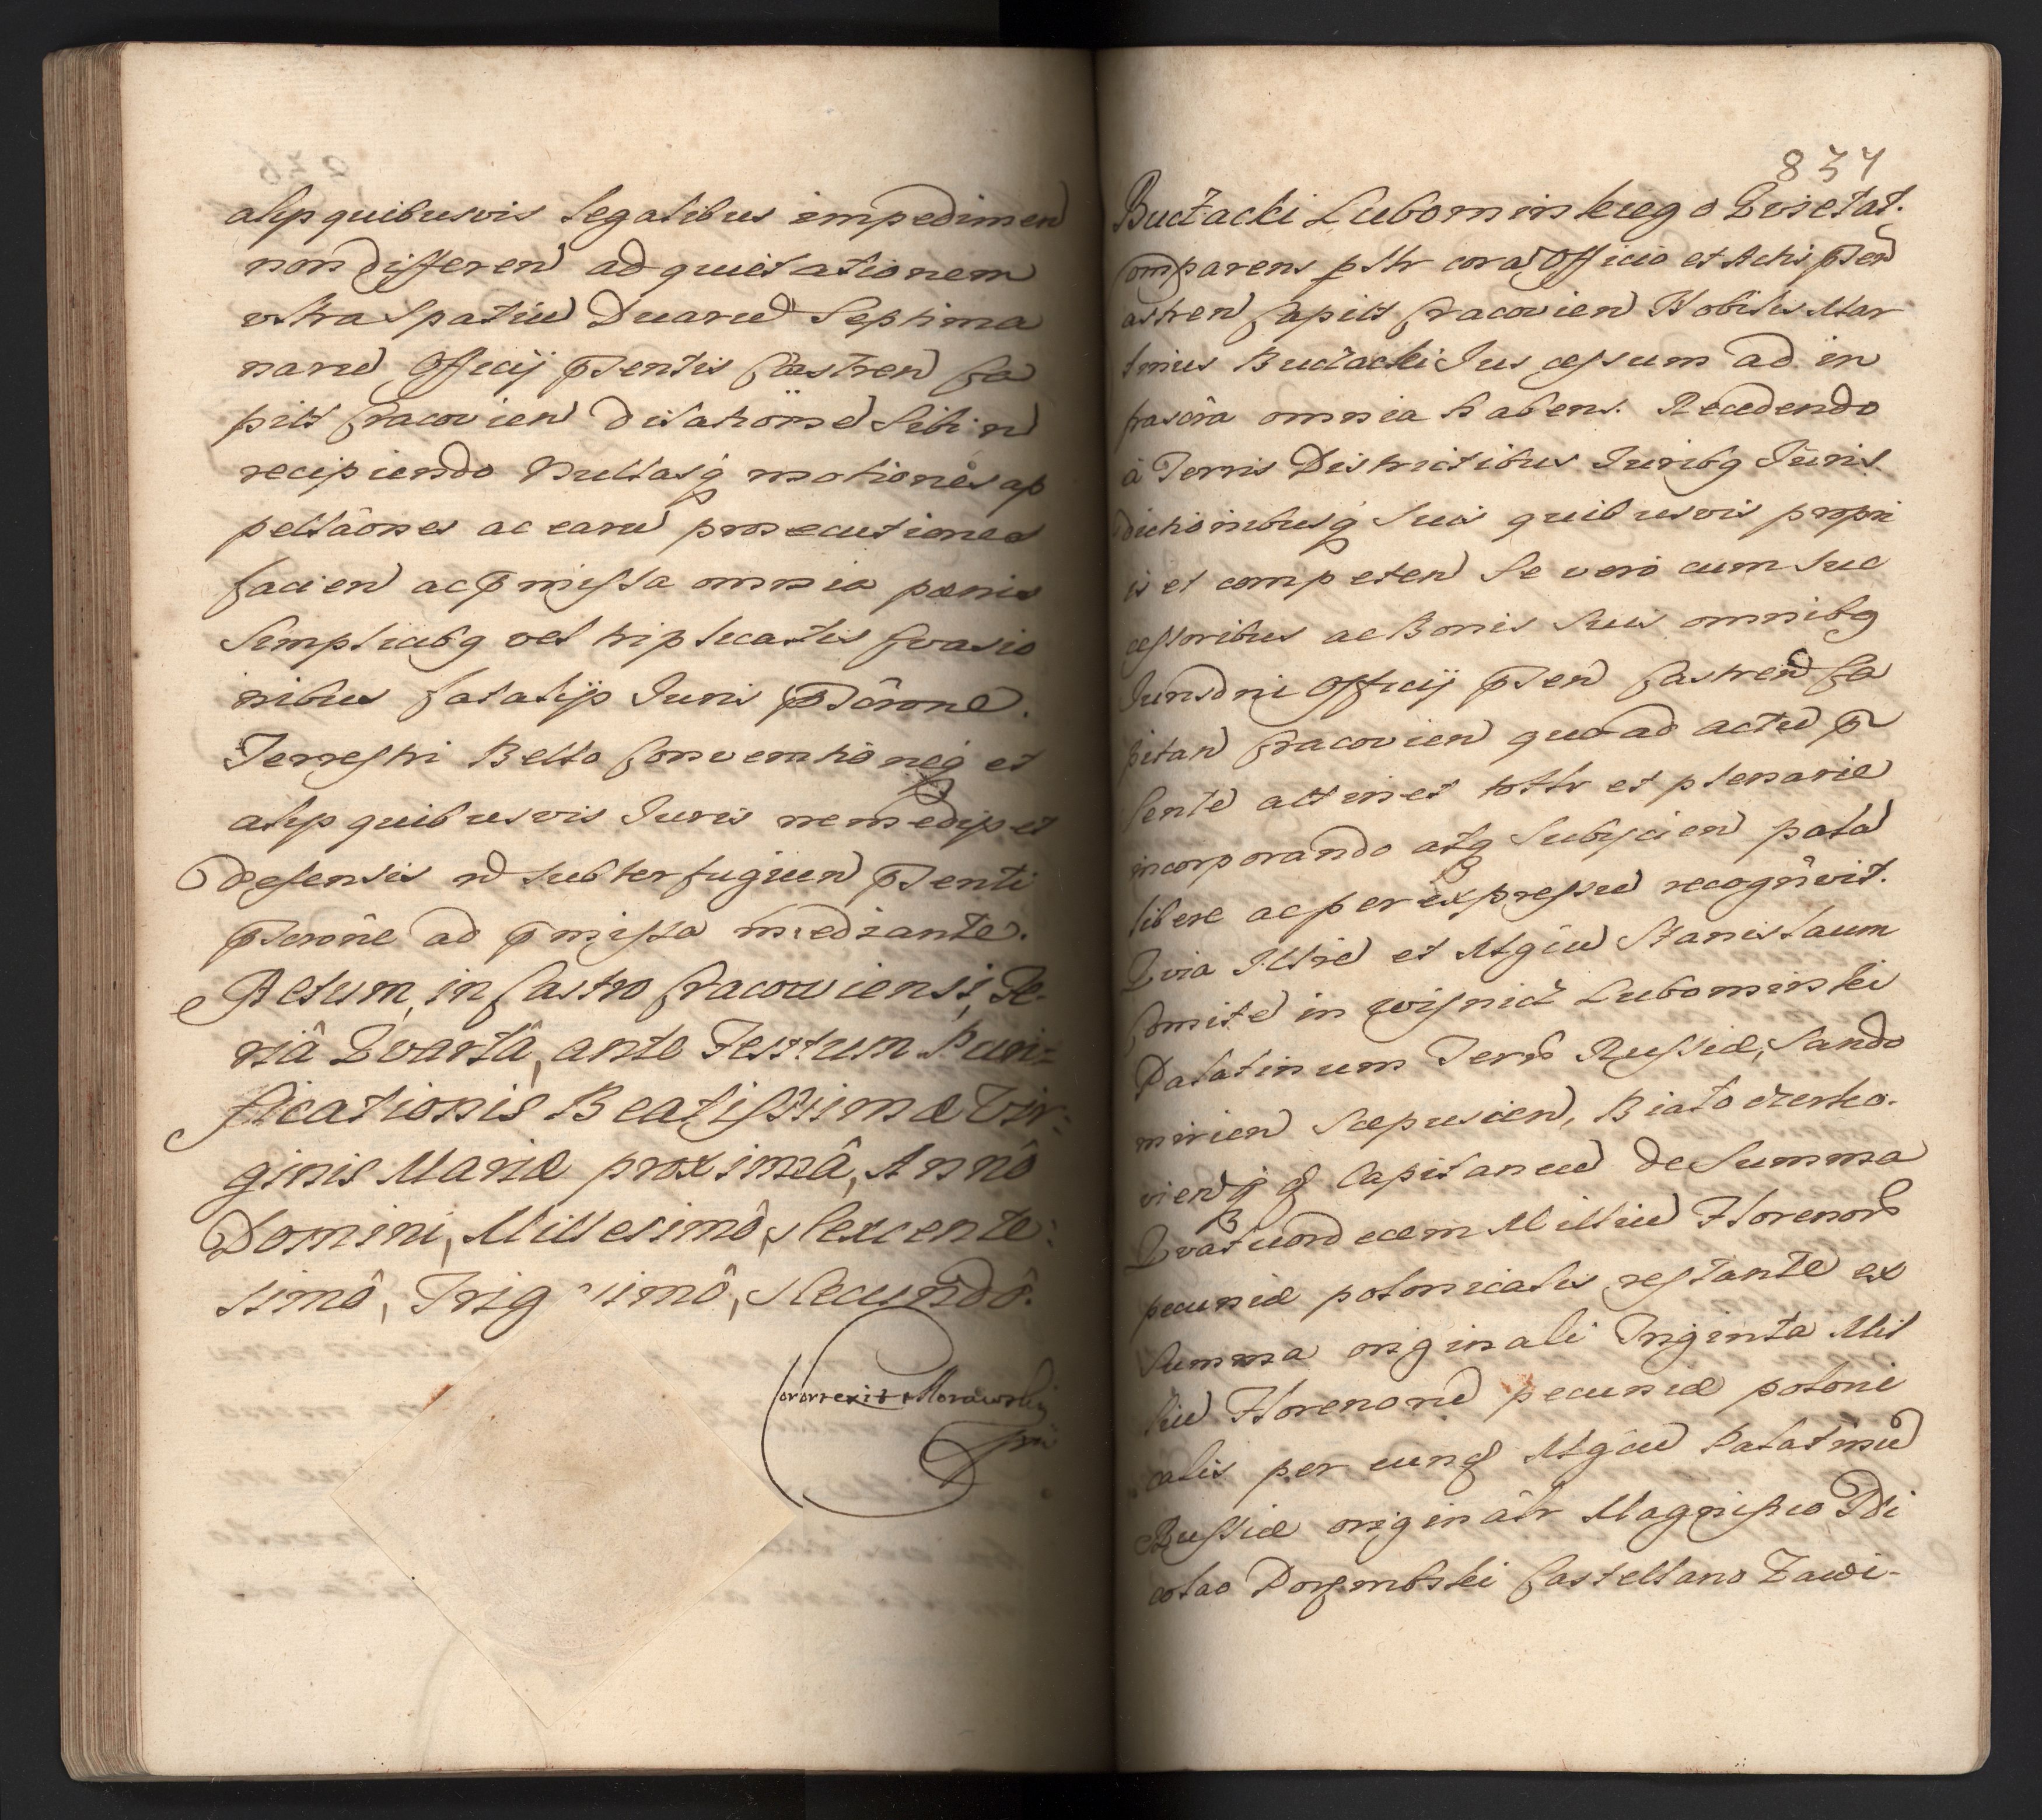 alijs quibusvis legalibus impedimen
non differen ad quietationem
vltra spatiu Duaru Septima
naru Officij pntis Castren Ca
pitt Cracovien dilationes Sibi n
recipiendo Nullasq motiones ap
pellaones ac earu prosecutiones
facien ac pmissa omnia pænis
Simplicibq vel triplicatis Evasio
nibus fatalijs Iuris pscrone
Terrestri Bello Conventioneq et
alijs quibusvis Iuris remedijs et
defensis n subterfugiien pnti
pscrone ad pmissa mediante.
Actum, in Castro Cracoviensi, Fe-
riâ Qvartâ, ante Festum Puri-
ficationis Beatissimæ Vir-
ginis Mariæ proximâ, Annô
Domini, Millesimô, Sexcente-
simô, Trigesimô, Secundô.
Corrorexit Morawsky
837
Buczacki Lubomirskiego Qvietat.
Comparens pstr cora Officio et Actis pnten
astren Capitt Cracovien Nobilis Mar
tinus Buczacki Ius cessum ad in
frascra omnia habens. Recedendo
à Terris Districtibus Iuribq Iuris
dictionibusq Suis quibusvis propri
is et competen Se vero cum suc
cessoribus ac Bonis Suis omnibq
Iurisdni Officij pnten Castren Ca
pitan Cracovien quoad actu p
sente attinet tottr et plenarie
incorporando atq Subijcien pala
libere ac per expressu recognovit.
Qvia Illre et Mgcu Stanislaum
Comite in Wisnicz Lubomirski
Palatinum Terrar Russiæ, Sando
mirien Scæpusien, Biało czerko-
vienq q Capitaneu de Summa
Qvatuordecem Milliu Florenor
pecuniæ polonicalis restante ex
Summa originali Triginta Mil
liu Florenoru pecuniæ poloni
calis per eunq Mgcu Palatinu
Russiæ originalr Magnifico Ni
colao Dorembski Castellano Zawi-